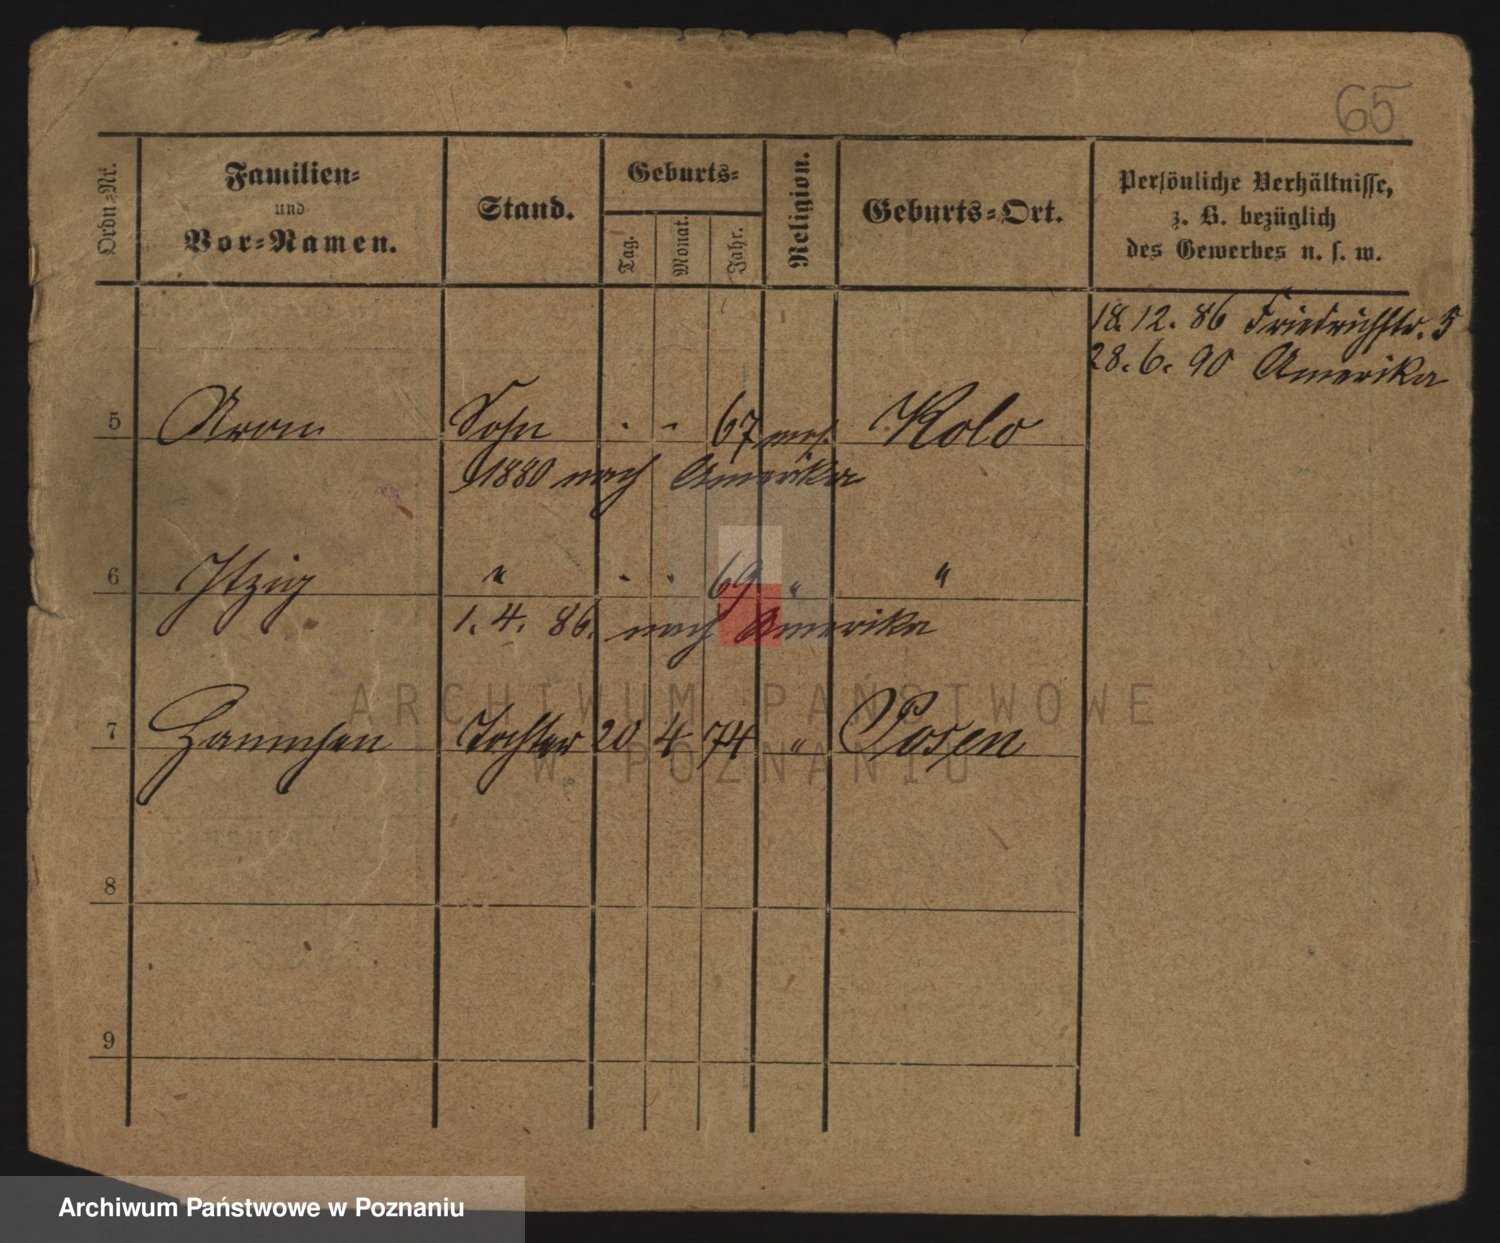 65
Ordn.-Nr.
Familien-
und
Vor-Namen.
Stand.
Geburts-
Tag.
Monat.
Jahr.
Religion.
Geburts-Ort.
Persönliche Verhältnisse,
z. B. bezüglich
des Gewerbes u. s. w.
18.12.86 Friedrichstr. 5
28.6.90 Amerika
5 Aron Sohn - - 67 mos. Kolo
1880 nach Amerika
6 Itzig " - - 69 " "
1.4.86. nach Amerika
ARCHIWUM PAŃSTWOWE
7 Hannchen Tochter 20 4 74 " Posen
W POZNANIU
8
9
Archiwum Państwowe w Poznaniu